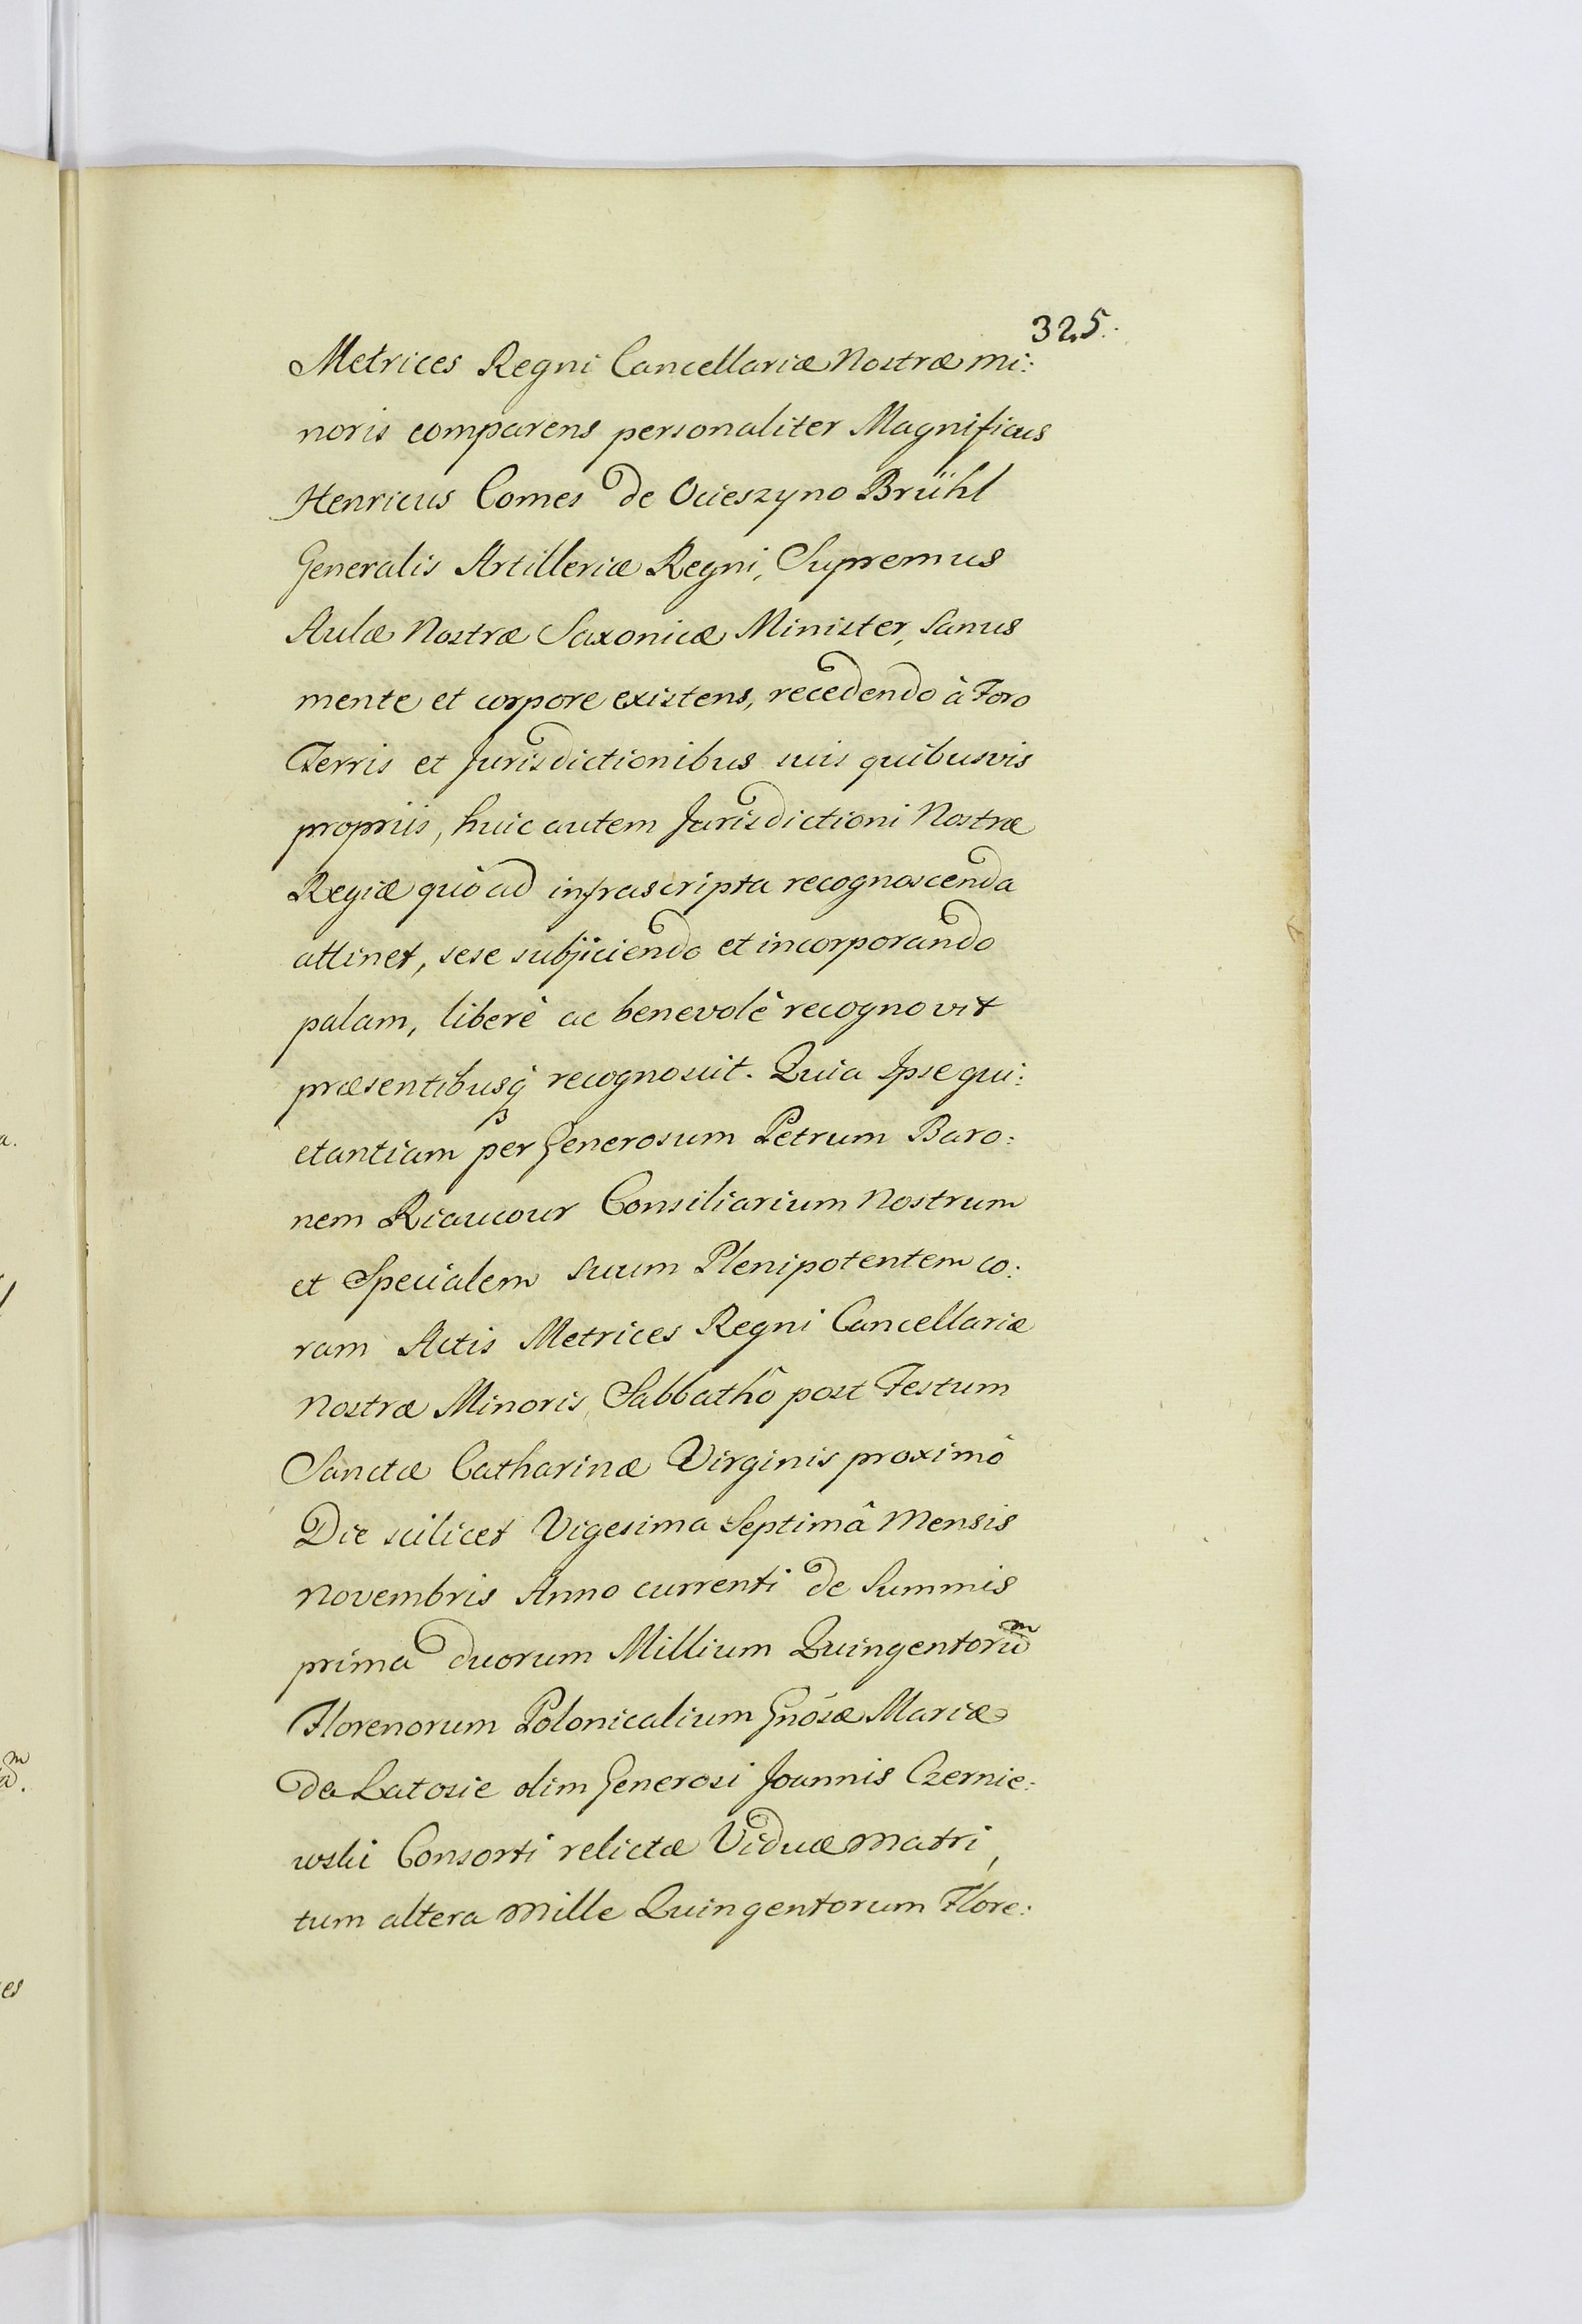 325.
Metrices Regni Cancellariæ Nostræ mi:
noris comparens personaliter Magnificus
Henricus Comes de Ocieszyno Brühl
Generalis Artilleriæ Regni, Supremus
Aulæ Nostræ Saxonicæ Minister, Sanus
mente et corpore existens, recedendo à Foro
Terris et Jurisdictionibus suis quibusvis
propriis, huic autem Jurisdictioni Nostræ
Regiæ quò ad infrascripta recognoscenda
attinet, sese subjiciendo et incorporando
palam, liberè ac benevolè recognovit
præsentibusq́ recognoscit. Quia Ipse qui:
etantiam per Generosum Petrum Baro:
nem Riaucour Consiliarium Nostrum
et Specialem suum Plenipotentem co:
ram Actis Metrices Regni Cancellariæ
Nostræ Minoris, Sabbathô post Festum
Sanctæ Catharinæ Virginis proximô
Die scilicet Vigesima Septimâ Mensis
Novembris Anno currenti de Summis
prima duorum Millium Quingentorũ
Florenorum Polonicalium Gnósæ Mariæ
de Latosie olim Generosi Joannis Czernie:
wski Consorti relictæ Viduæ Matri,
tum altera Mille Quingentorum Flore: